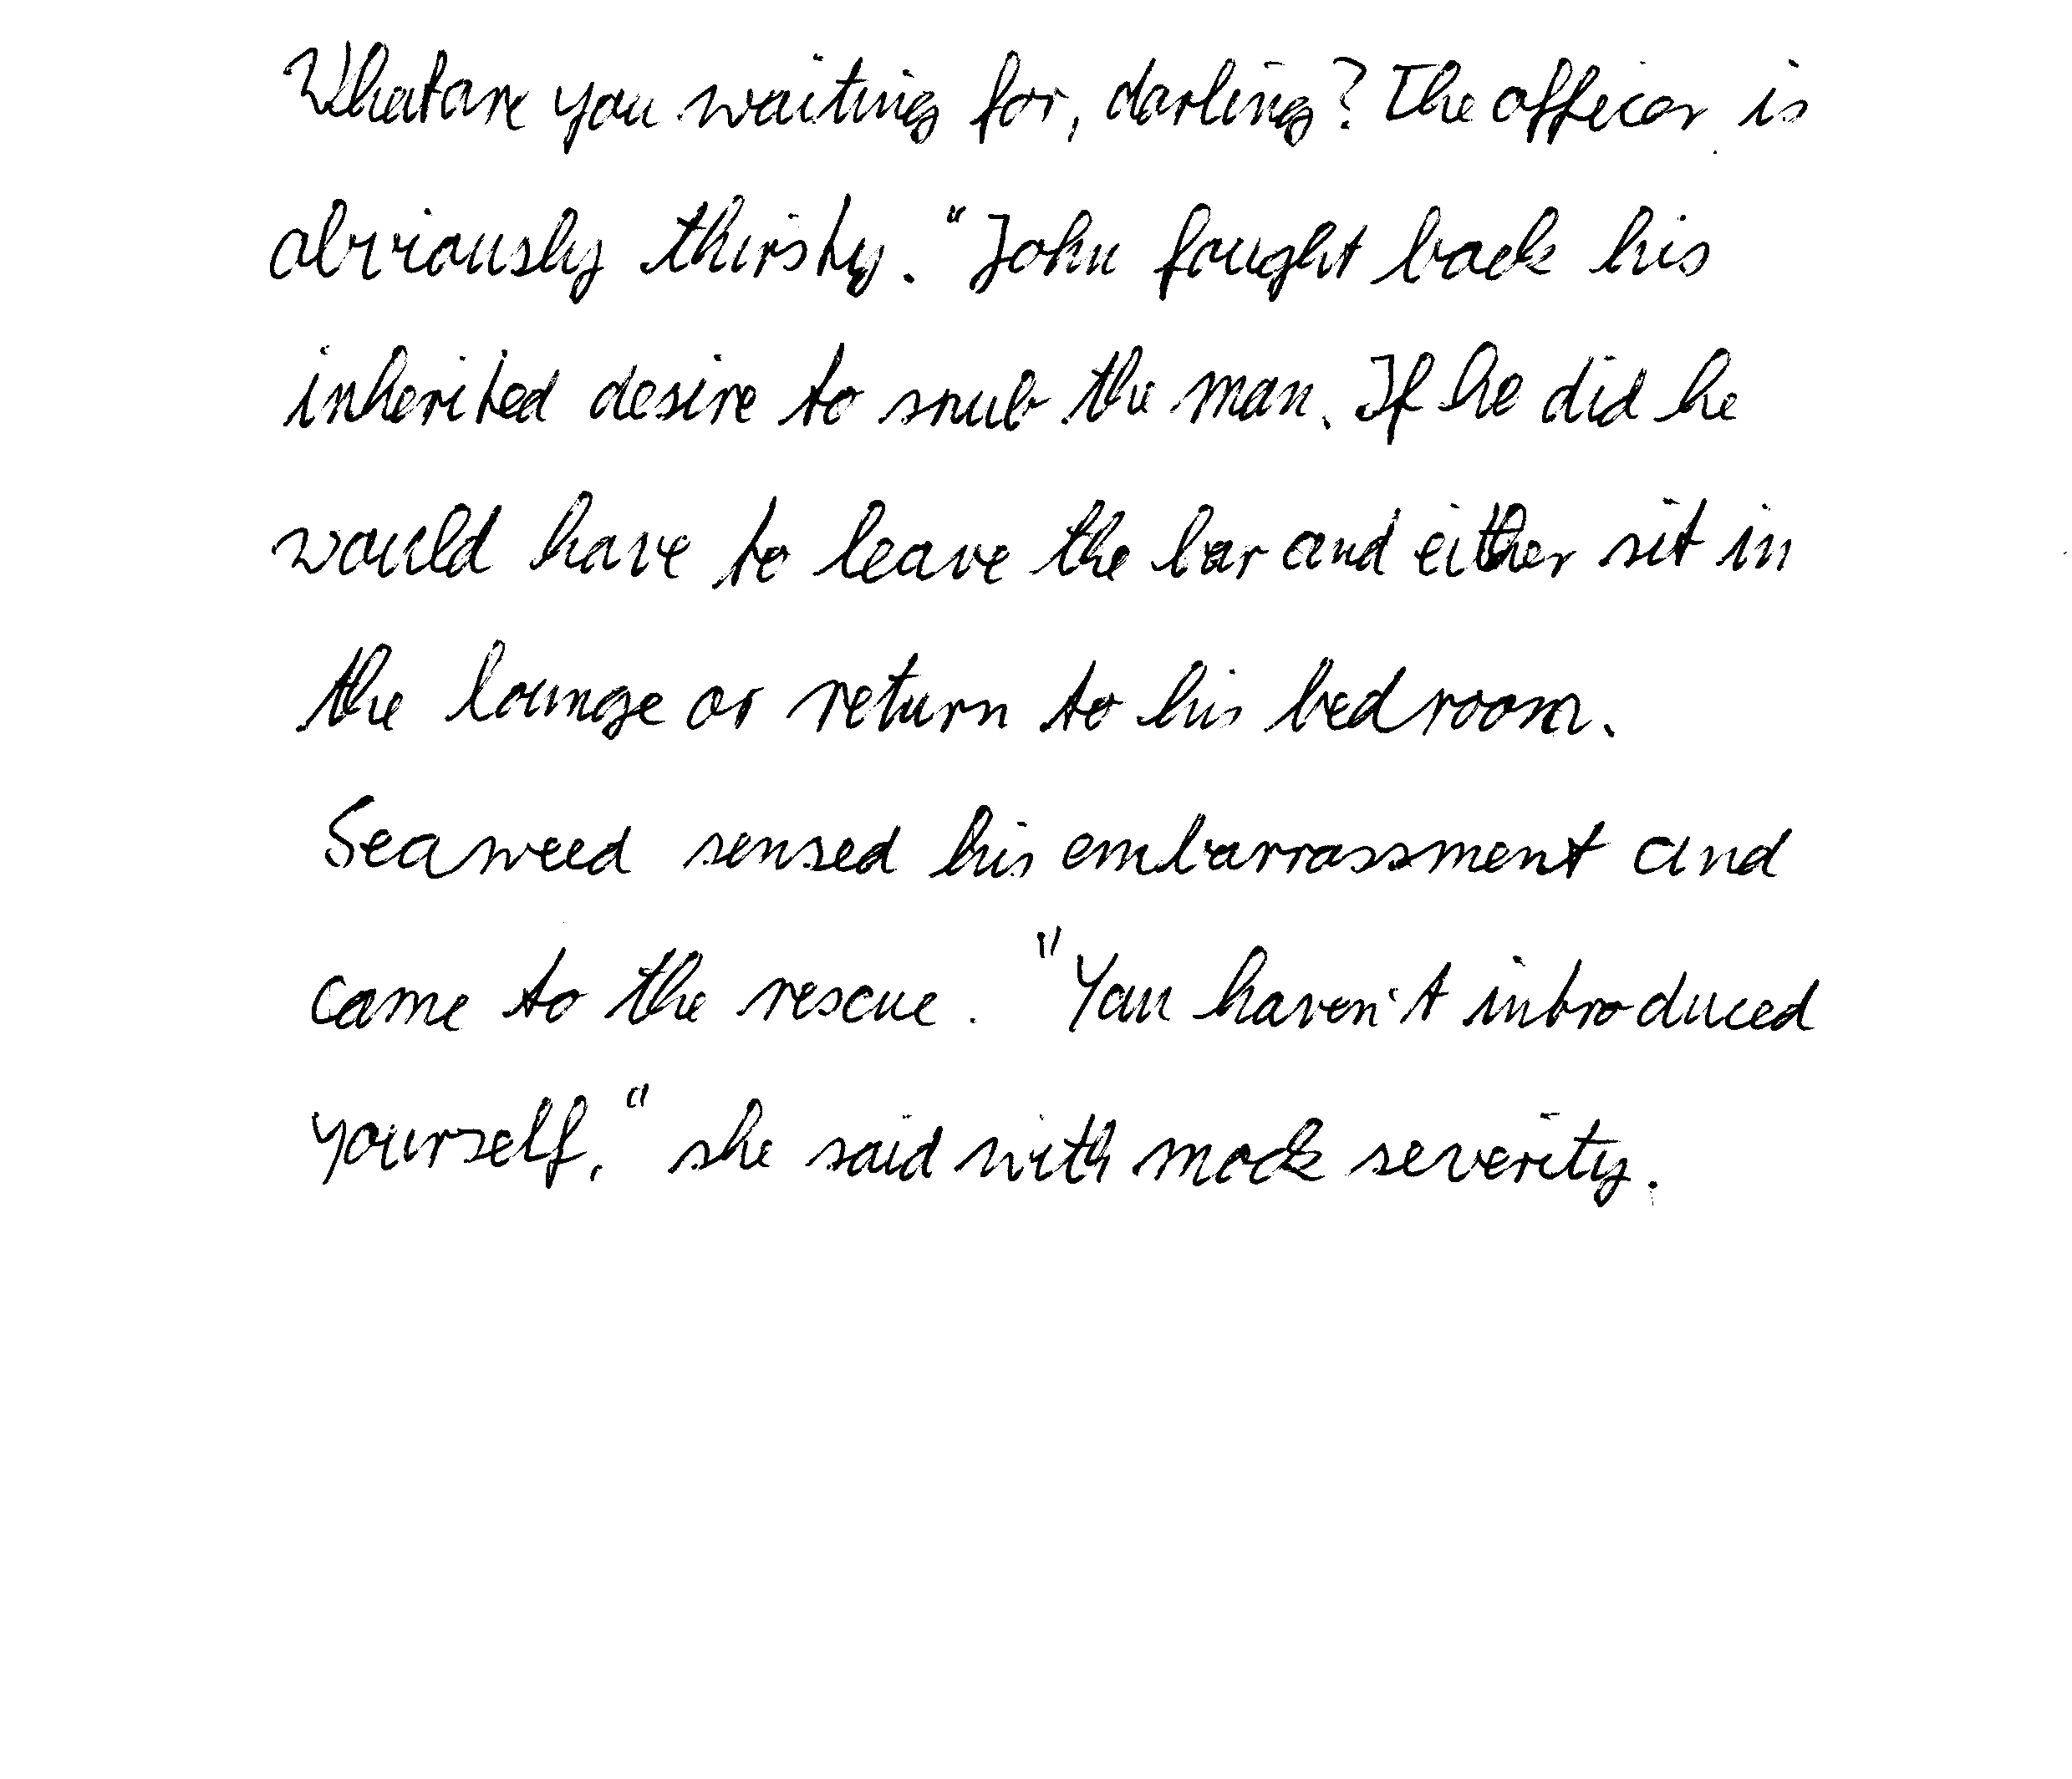 What are you waiting for, darling? The officer is
obviously thirsty. "John fought back his
inherited desire to snub the man. If he did he
would have to leave the bar and either sit in
the lounge or return to his bedroom.
Seaweed sensed his embarrassment and
came to the rescue. "You haven't introduced
yourself," she said with mock severity.